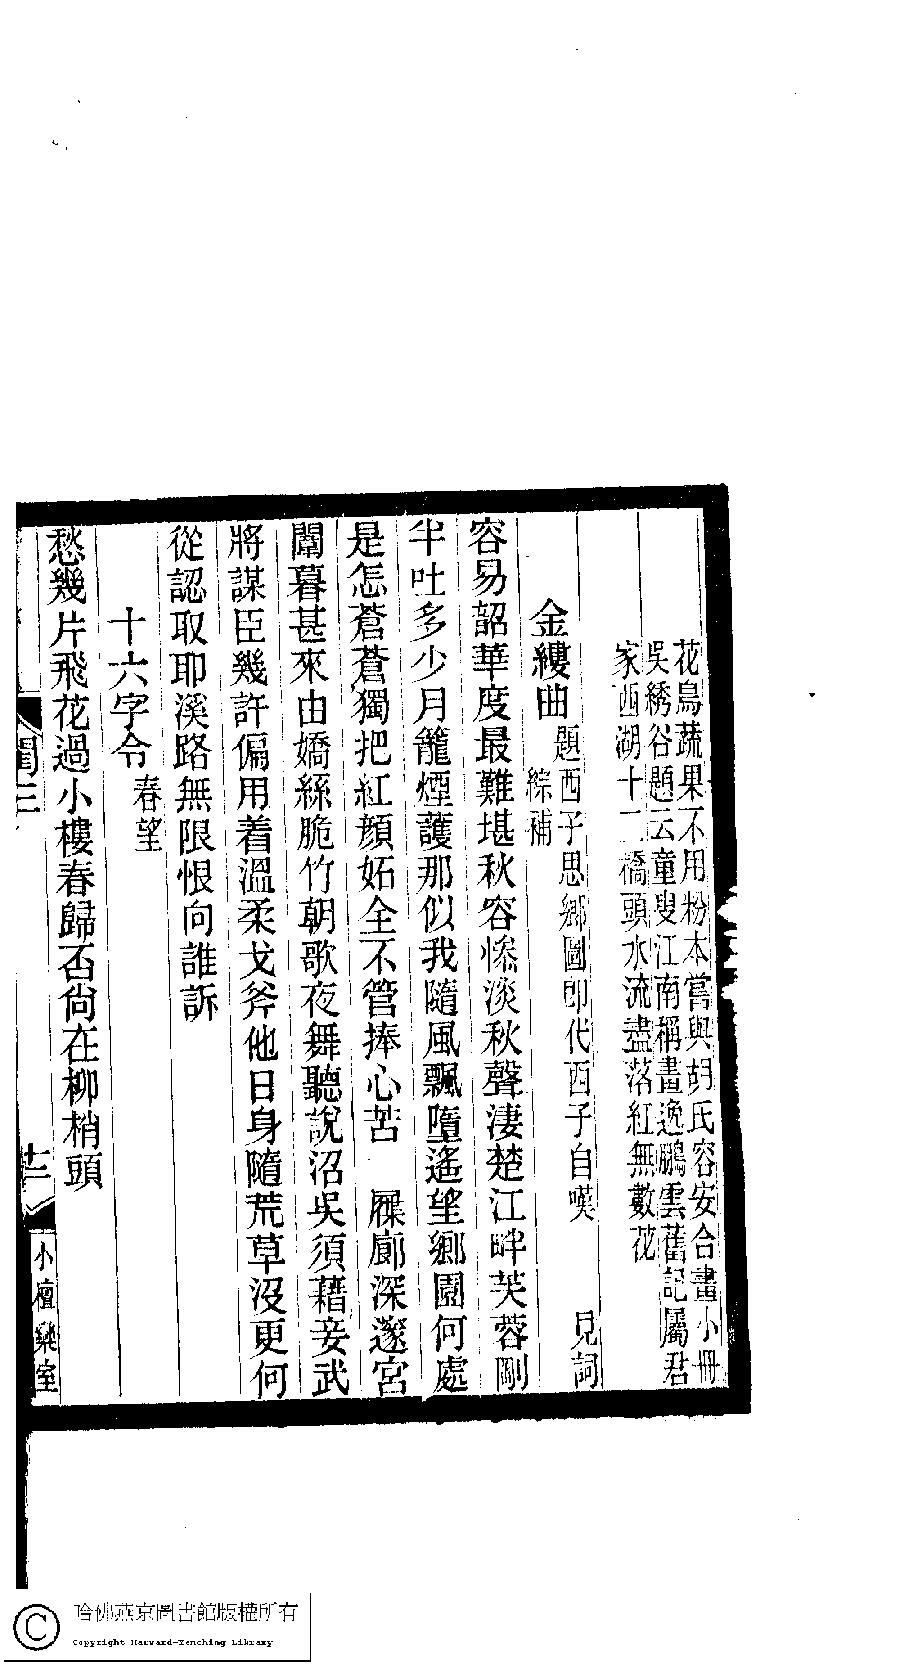 花鳥蔬果不用粉本嘗與胡氏容安合畫小冊
吳綉谷題云童叟江南稱畫逸鵬雲舊記屬君
家西湖十二橋頭水流盡落紅無數花
金縷曲
題西子思鄉圖即代西子自嘆 見詞
綜補
容易韶華度最難堪秋容慘淡秋聲淒楚江畔芙蓉剛
半吐多少月籠煙護那似我隨風飄墮遙望鄉園何處
是怎蒼蒼獨把紅顏妬全不管捧心苦 屧廊深邃宮
闈暮甚來由嬌絲脆竹朝歌夜舞聽說沼吳須藉妾武
將謀臣幾許偏用着溫柔戈斧他日身隨荒草沒更何
從認取耶溪路無限恨向誰訴
十六字令
春望
愁幾片飛花過小樓春歸否尙在柳梢頭
閨三
十二
小檀欒室
哈佛燕京圖書館版權所有
Copyright Harvard-Yenching Library